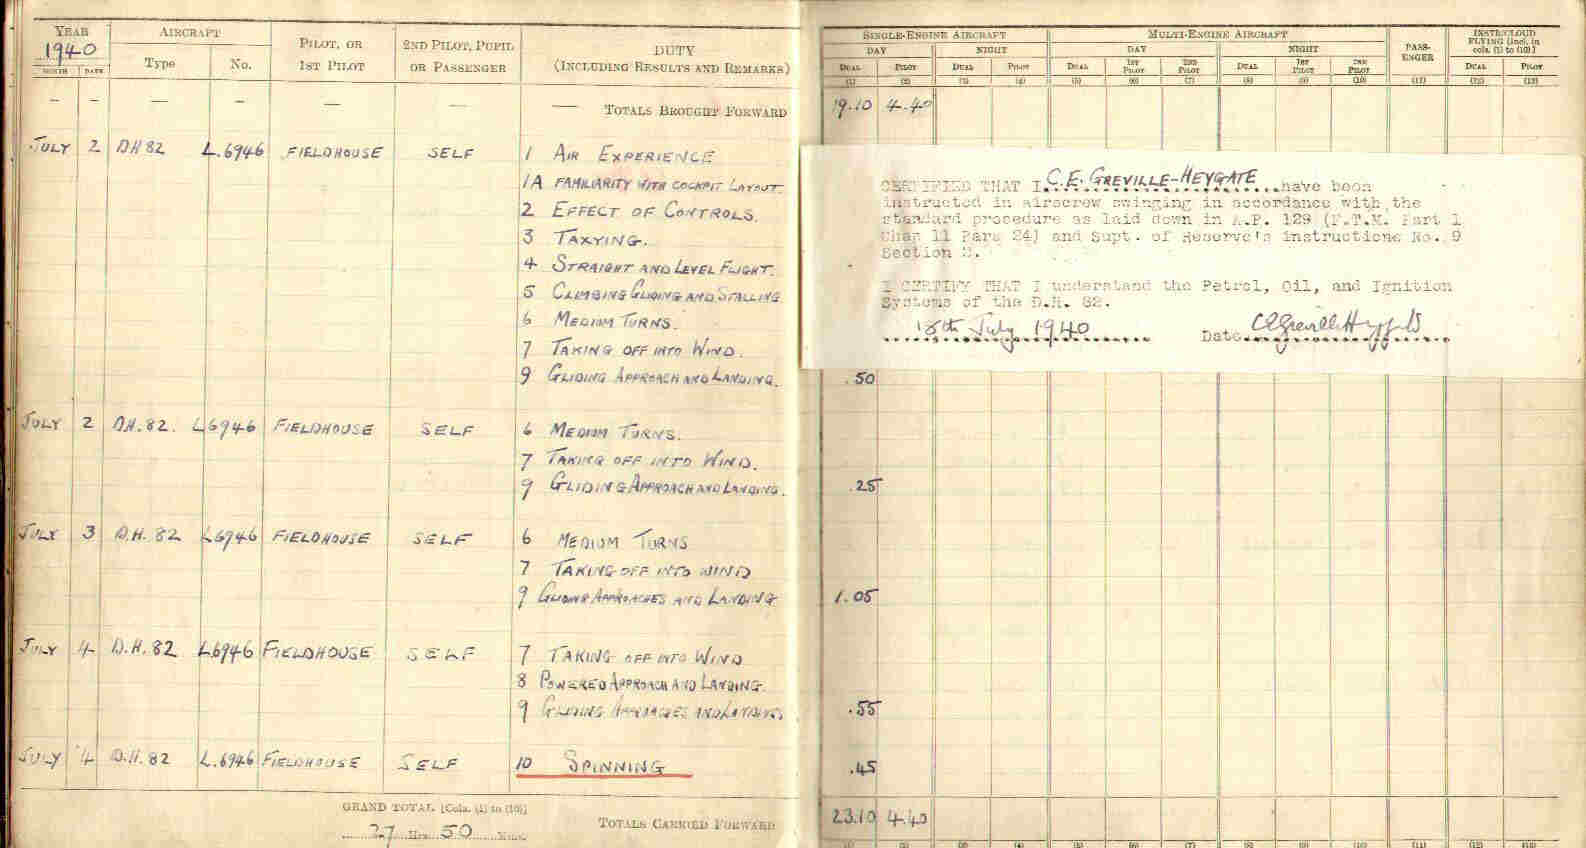 YEAR AIRCRAFT PILOT, OR 1ST PILOT 2ND PILOT, PUPIL OR PASSENGER DUTY (INCLUDING RESULTS AND REMARKS)
1940
MONTH DATE Type No.
— — — — — — — TOTALS BROUGHT FORWARD
JULY 2 DH 82 L.6946 FIELDHOUSE SELF 1 AIR EXPERIENCE
1A FAMILIARITY WITH COCKPIT LAYOUT.
2 EFFECT OF CONTROLS.
3 TAXYING.
4 STRAIGHT AND LEVEL FLIGHT.
5 CLIMBING GLIDING AND STALLING
6 MEDIUM TURNS.
7 TAKING OFF INTO WIND.
9 GLIDING APPROACH AND LANDING.
JULY 2 DH.82. L6946 FIELDHOUSE SELF 6 MEDIUM TURNS.
7 TAKING OFF INTO WIND.
9 GLIDING APPROACH AND LANDING.
JULY 3 D.H. 82 L6946 FIELDHOUSE SELF 6 MEDIUM TURNS
7 TAKING OFF INTO WIND
9 GLIDING APPROACHES AND LANDING
JULY 4 D.H. 82 L6946 FIELDHOUSE SELF 7 TAKING OFF INTO WIND
8 POWERED APPROACH AND LANDING.
9 GLIDING APPROACHES AND LANDINGS
JULY 4 D.H. 82 L.6946 FIELDHOUSE SELF 10 SPINNING
GRAND TOTAL [Cols. (1) to (10)]
27 Hrs. 50 Mins.
TOTALS CARRIED FORWARD
SINGLE-ENGINE AIRCRAFT MULTI-ENGINE AIRCRAFT PASS-ENGER INSTR/CLOUD FLYING [Incl. in cols. (1) to (10)]
DAY NIGHT DAY NIGHT
DUAL PILOT DUAL PILOT DUAL 1ST PILOT 2ND PILOT DUAL 1ST PILOT 2ND PILOT DUAL PILOT
(1) (2) (3) (4) (5) (6) (7) (8) (9) (10) (11) (12) (13)
19.10 4.40
CERTIFIED THAT I C.E. GREVILLE-HEYGATE have been
instructed in airscrew swinging in accordance with the
standard procedure as laid down in A.P. 129 (F.T.M. Part 1
Chap 11 Para 24) and Supt. of Reserve's instructions No. 9
Section 2.
I CERTIFY THAT I understand the Petrol, Oil, and Ignition
Systems of the D.H. 82.
18th July 1940 Date CEGreville Heygate
.50
.25
1.05
.55
.45
23.10 4.40
(1) (2) (3) (4) (5) (6) (7) (8) (9) (10) (11) (12) (13)